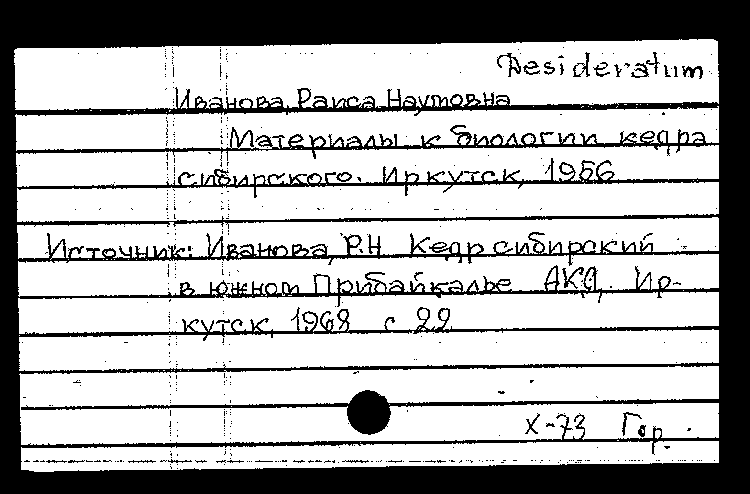 Desideratum
Иванова, Раиса Наумовна
Материалы к биологии кедра
сибирского. Иркутск, 1956
Источник: Иванова, Р.Н Кедр сибирский
в южном Прибайкалье АКД, Ир-
кутск, 1968 с 22
X-73 Гор.